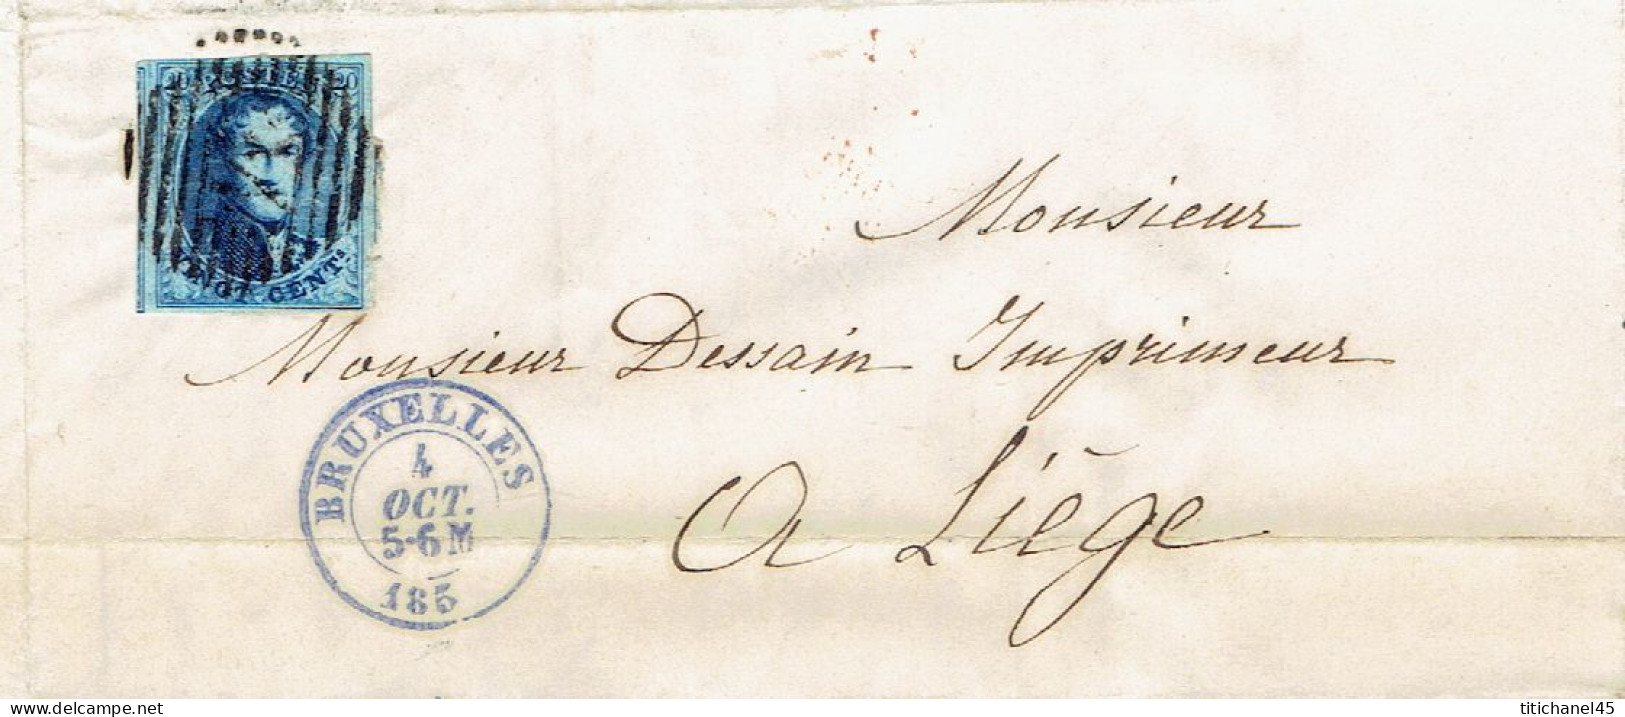 20 POSTES 20
VINGT CENTS
Monsieur
Monsieur Dessain Imprimeur
A Liége
BRUXELLES
4
OCT.
5-6 M
185
www.delcampe.net
titichanel45